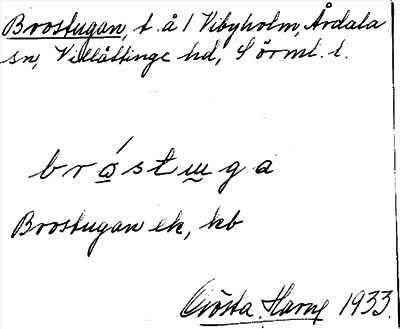 Brostugan, t. å 1 Vibyholm, Årdala
sn, Villåttinge hd, Sörml. l.
brɷ́stɯga
Brostugan ek, kb
Gösta Harne 1933.